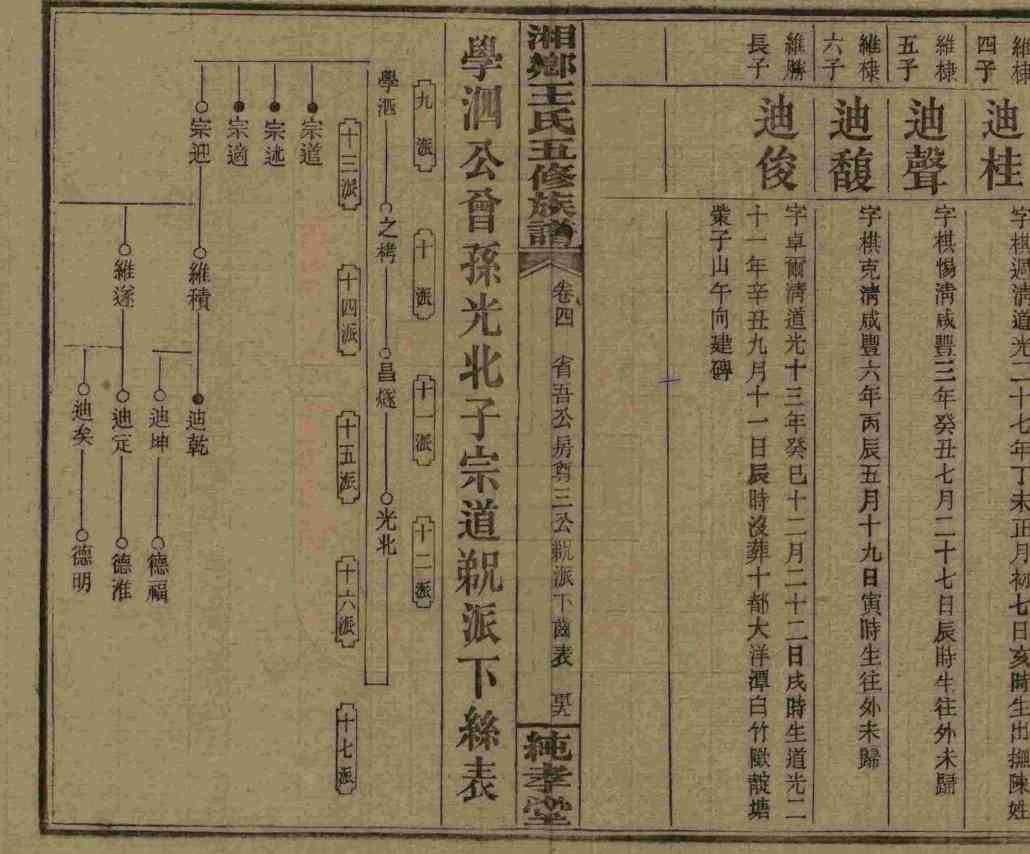 維棣四子
迪桂
字棋週清道光二十七年丁未正月初七日亥時生出撫陳姓
維棣五子
迪聲
字棋惕清咸豐三年癸丑七月二十七日辰時生往外未歸
維棣六子
迪馥
字棋克清咸豐六年丙辰五月十九日寅時生往外未歸
維勝長子
迪俊
字卓爾清道光十三年癸巳十二月二十二日戌時生道光二
十一年辛丑九月十一日辰時沒葬十都大洋潭白竹歐靛塘
柴子山午向建碑
湘鄉王氏五修族譜
卷四 省吾公房尊三公派下齒表
純孝堂
學泗公曾孫光北子宗道派下絲表
九派
十派
十一派
十二派
學泗
之栲
昌燧
光北
十三派
十四派
十五派
十六派
十七派
宗道
宗述
宗適
宗迎
維積
迪乾
迪坤
德福
維遂
迪定
德淮
迪矣
德明